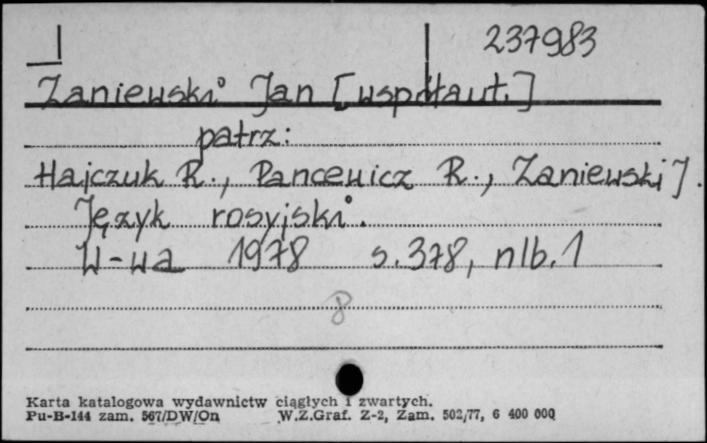 237983
Zaniewski Jan [współaut.]
patrz:
Hajczuk R., Pancewicz R., Zaniewski J.
Język rosyjski.
W-wa 1978 s. 378, nlb. 1
8
Karta katalogowa wydawnictw ciągłych i zwartych.
Pu-B-144 zam. 567/DW/On W.Z.Graf. Z-2, Zam. 502/77, 6 400 000